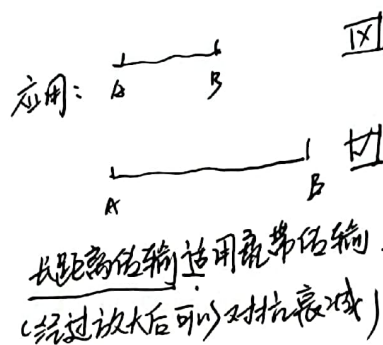 应用：
A B
A B
长距离传输适用宽带传输.
(经过放大后可以对抗衰减)